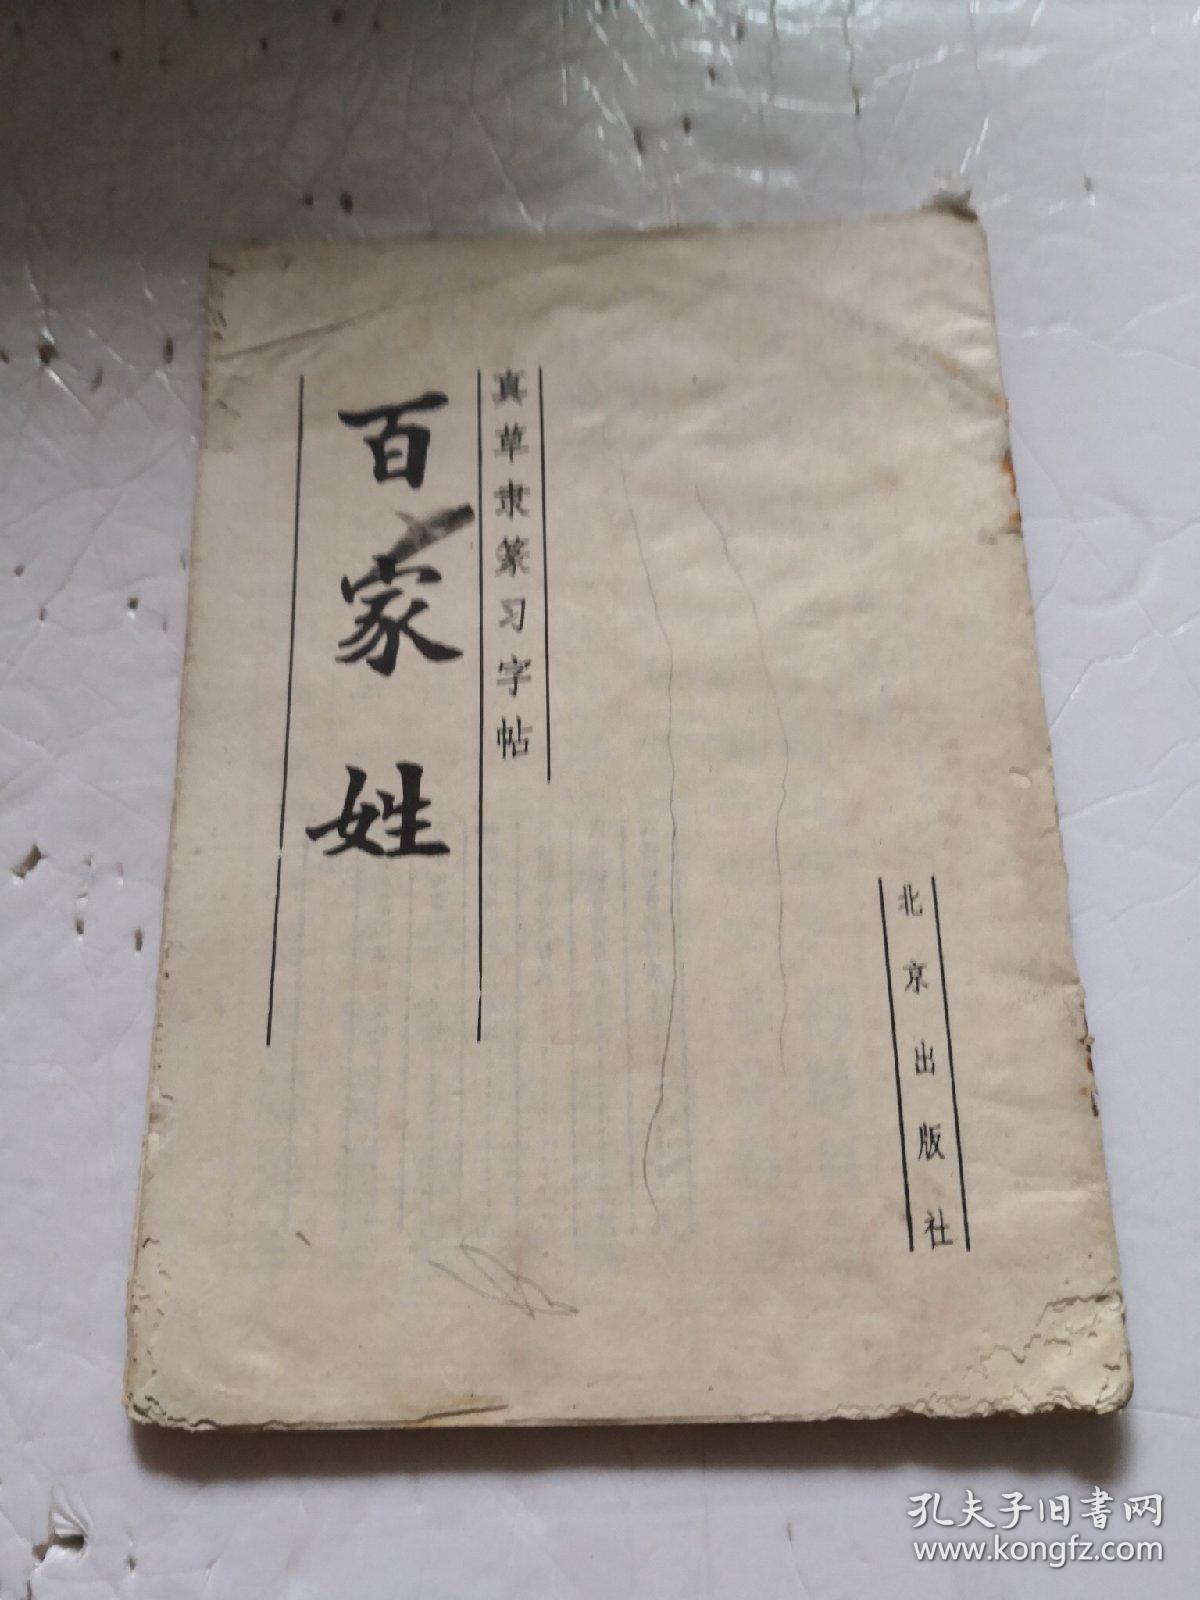 真草隶篆习字帖
百家姓
北京出版社
孔夫子旧书网
www.kongfz.com